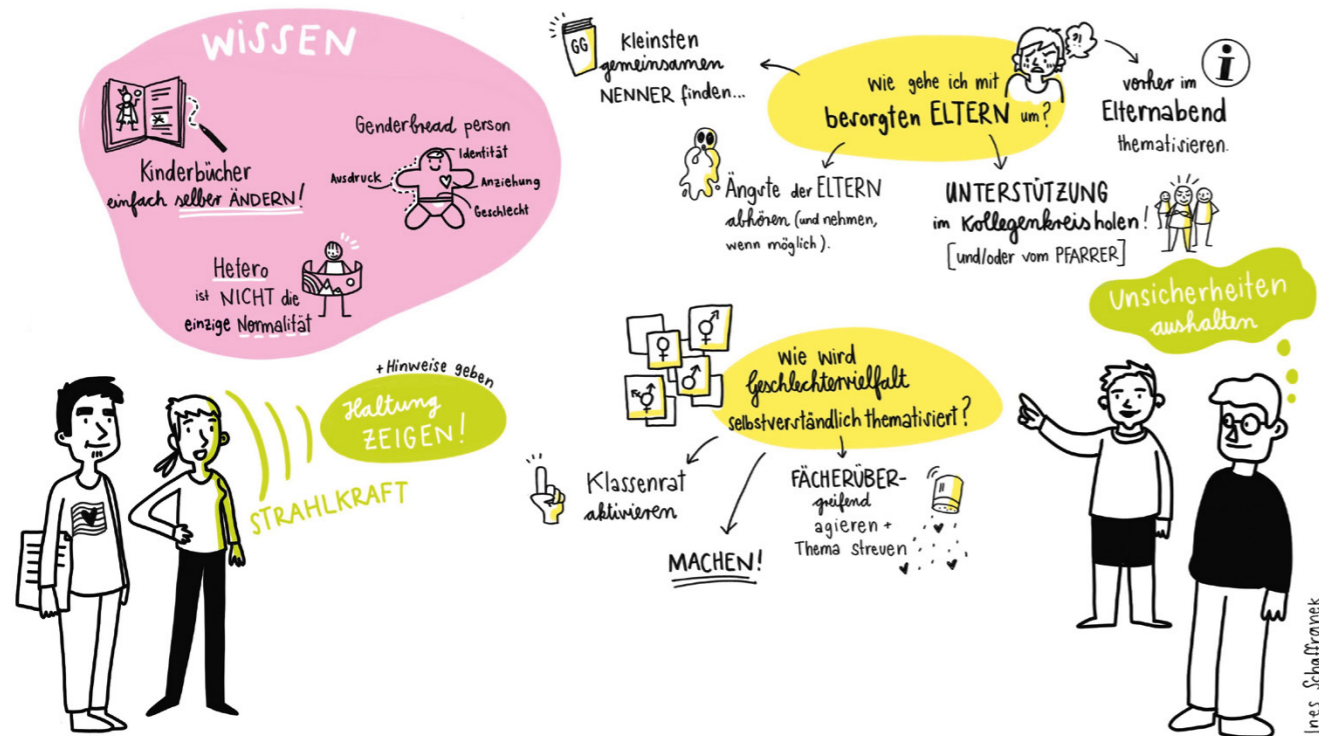 WISSEN
Kinderbücher
einfach selber ÄNDERN!
Genderbread person
Identität
Ausdruck
Anziehung
Geschlecht
Hetero
ist NICHT die
einzige Normalität
+ Hinweise geben
Haltung
ZEIGEN!
STRAHLKRAFT
GG
Kleinsten
gemeinsamen
NENNER finden...
Wie gehe ich mit
besorgten ELTERN um?
?!
i
vorher im
Elternabend
thematisieren.
Ängste der ELTERN
abhören (und nehmen,
wenn möglich).
UNTERSTÜTZUNG
im Kollegenkreis holen!
[und/oder vom PFARRER]
Unsicherheiten
aushalten
Wie wird
Geschlechtervielfalt
selbstverständlich thematisiert?
Klassenrat
aktivieren
MACHEN!
FÄCHERÜBER-
greifend
agieren +
Thema streuen
Ines Schaffranek